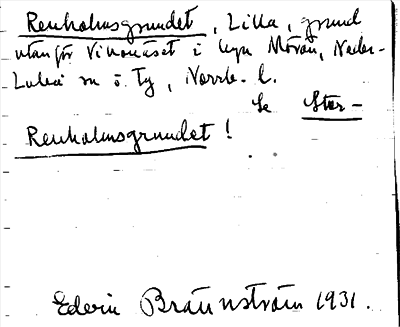 Renholmsgrundet, Lilla, grund
utanför Vikanäset i byn Mörön, Neder-
Luleå sn o. Tg, Norrb. l.
Se Stor-
Renholmsgrundet!
Edvin Brännström 1931.